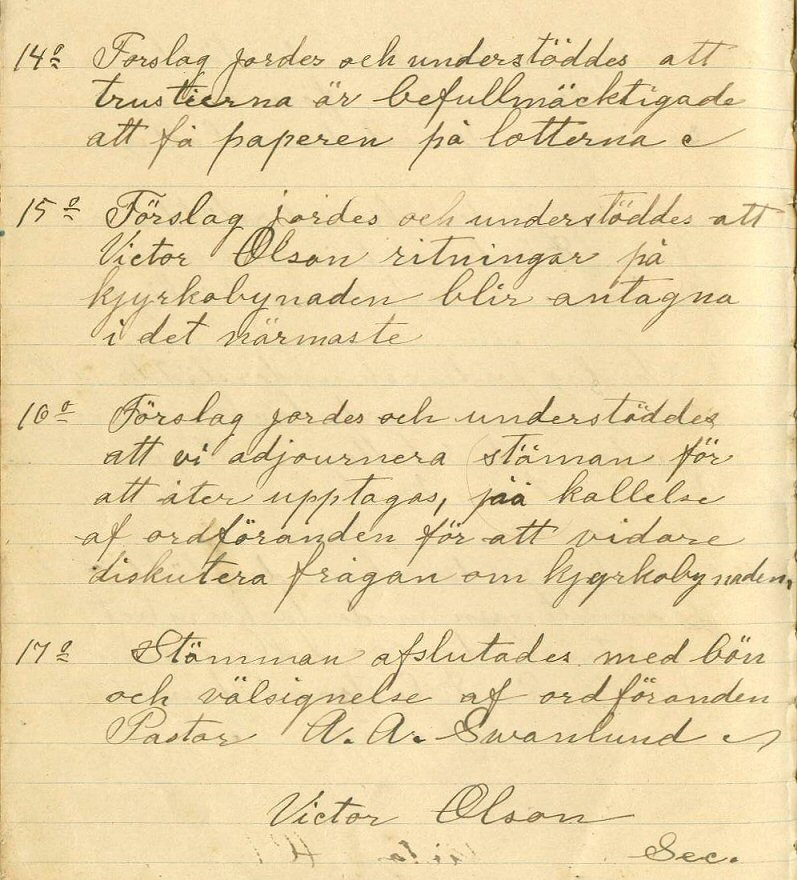 14o Forslag jordes och understöddes att
trustierna är befullmäcktigade
att få paperen på lotterna
15o Förslag jordes och understöddes att
Victor Olson ritningar på
kjyrkobynaden blir antagna
i det närmaste
16o Förslag jordes och understöddes
att vi adjournera stäman för
att åter upptagas, på kallelse
af ordföranden för att vidare
diskutera frågan om kjyrkobynaden,
17o Stämman afslutades med bön
och välsignelse af ordföranden
Pastor A. A. Swanlund
Victor Olson
Sec.